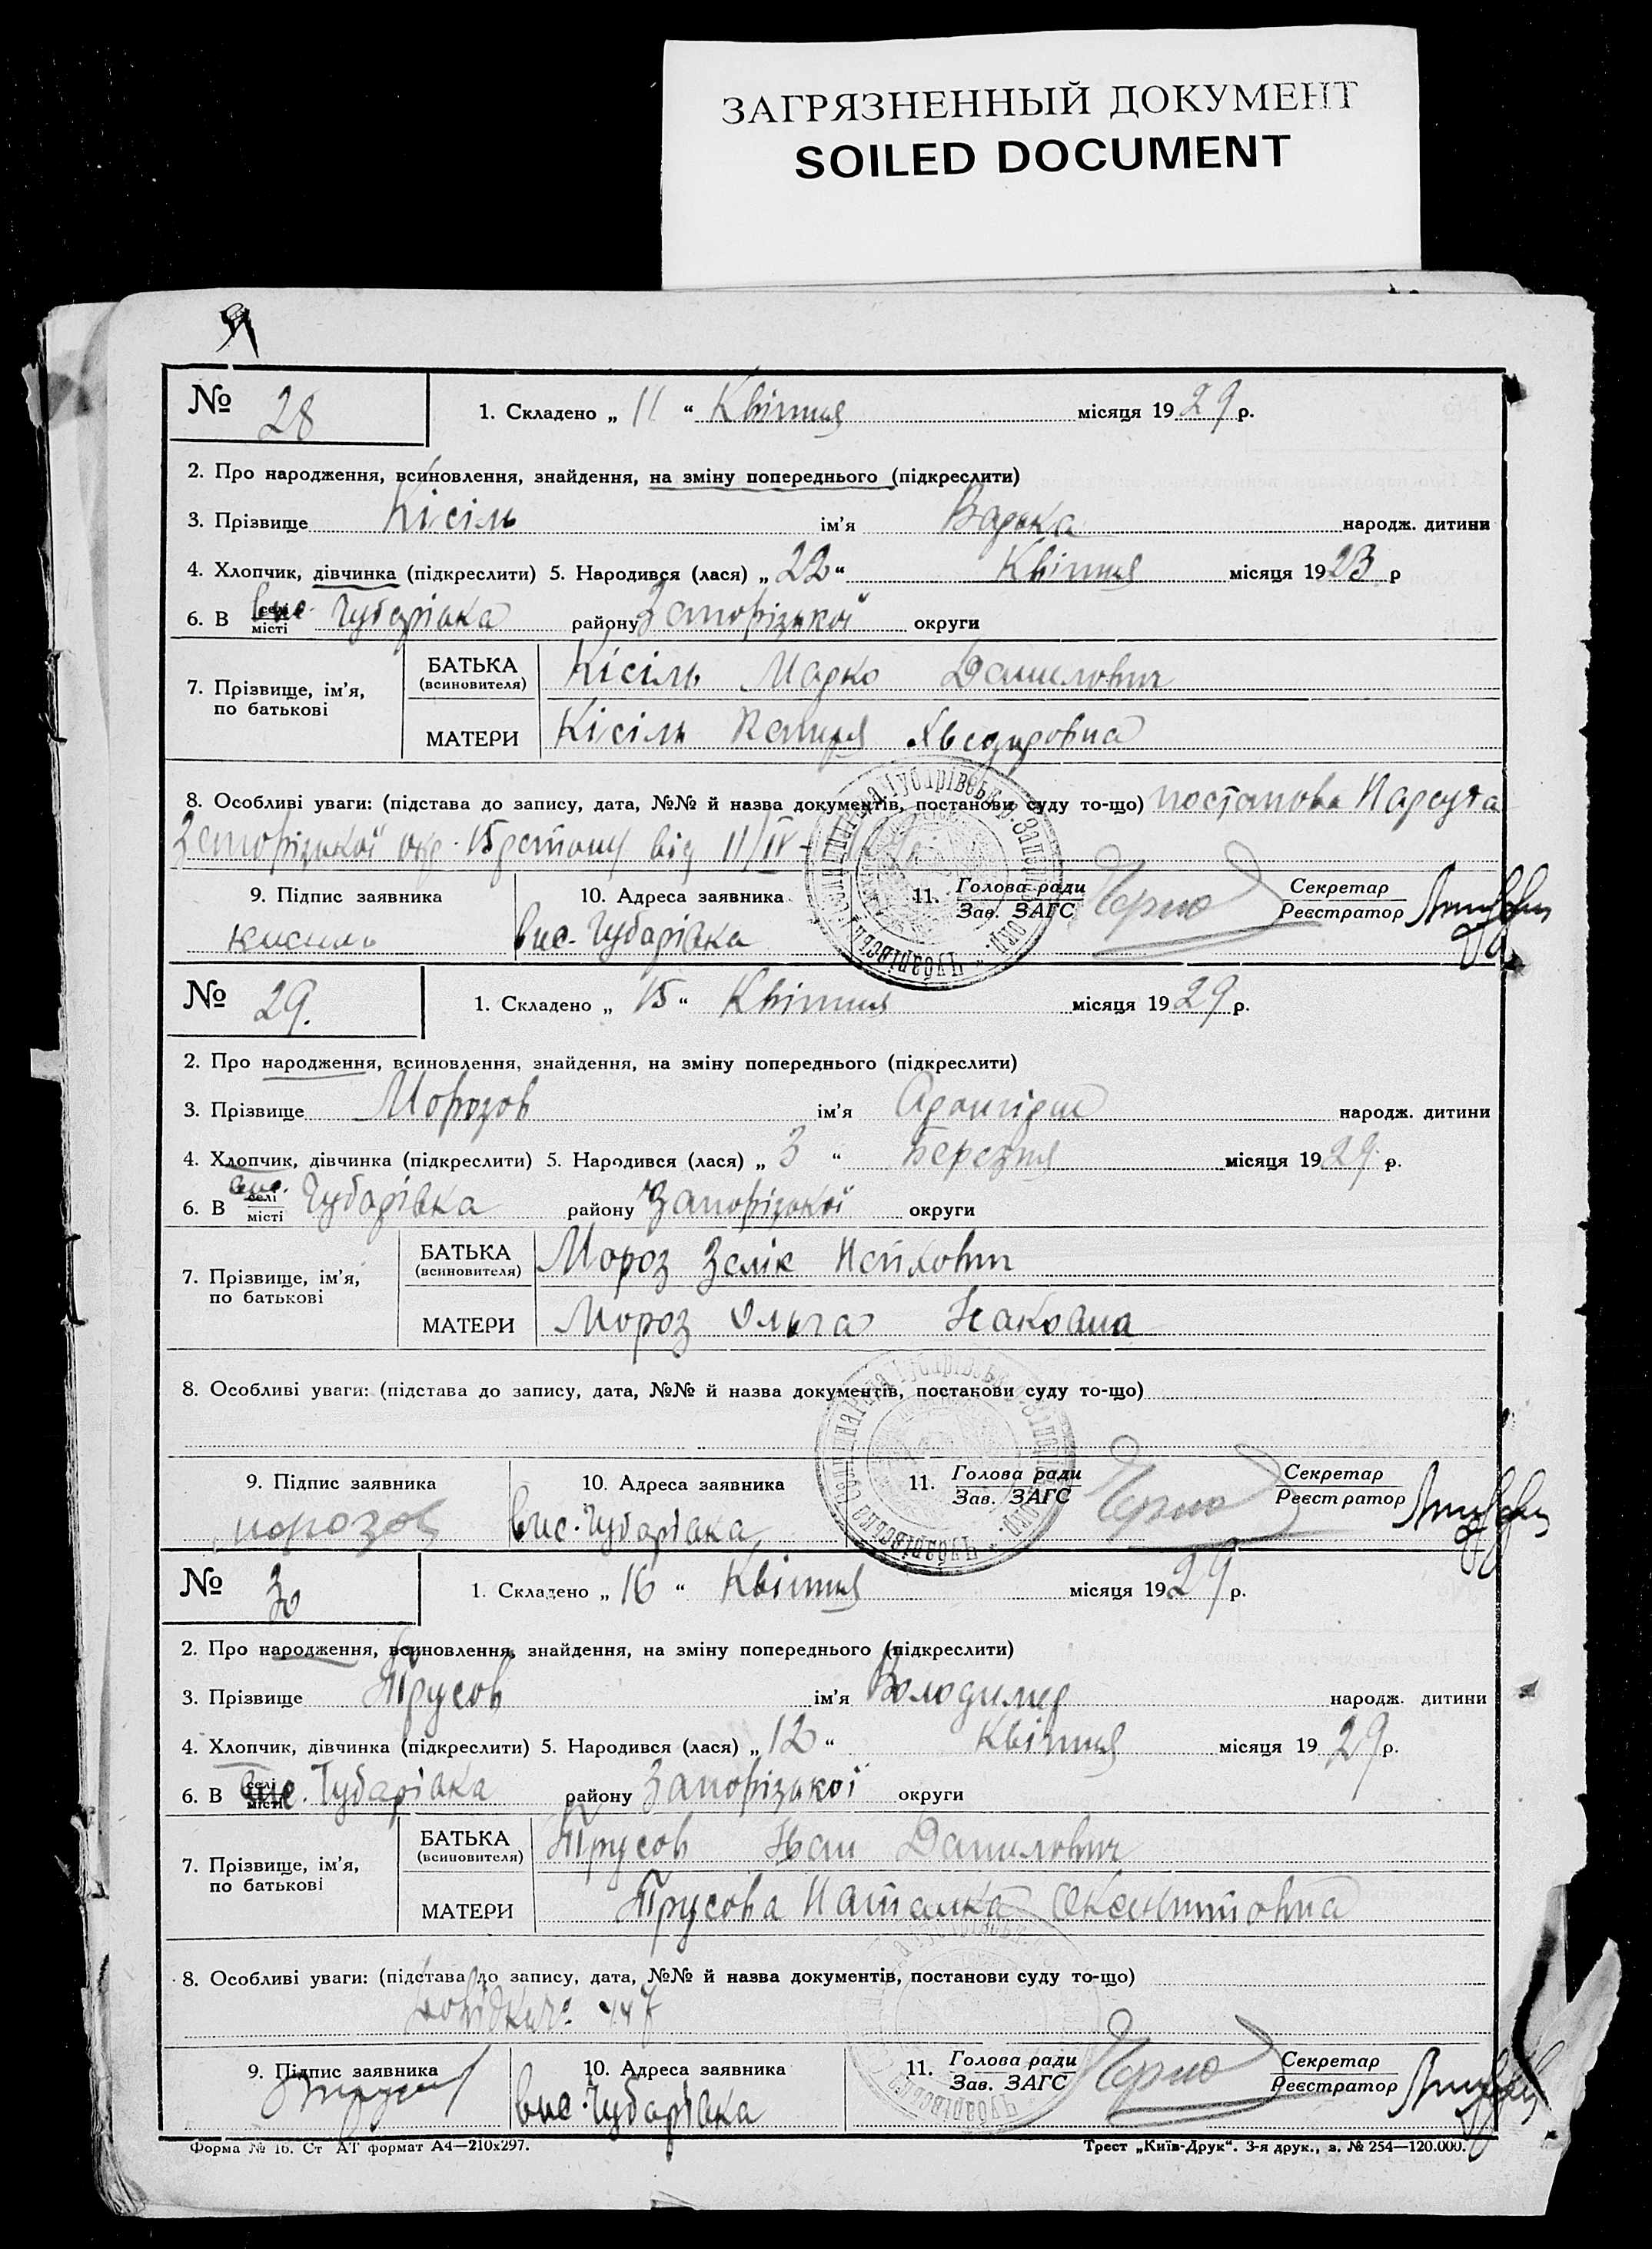 ЗАГРЯЗНЕННЫЙ ДОКУМЕНТ
SOILED DOCUMENT
№ 28
1. Складено „ 11 “ Квітня місяця 1929 р.
2. Про народження, всиновлення, знайдення, на зміну попереднього (підкреслити)
3. Прізвище Кісіль ім'я Варька народж. дитини
4. Хлопчик, дівчинка (підкреслити) 5. Народився (лася) „ 22 “ Квітня місяця 1923 р
6. В селі місті вис. Чубарівка району Запорізької округи
7. Прізвище, ім'я, по батькові
БАТЬКА (всиновителя) Кісіль Марко Данилович
МАТЕРИ Кісіль
8. Особливі уваги: (підстава до запису, дата, №№ й назва документів, постанови суду то-що) постанова Нарсуда
Запорізької окр. від 11/IV
9. Підпис заявника 10. Адреса заявника 11. Голова ради Зав. ЗАГС Секретар Реєстратор
кисиль вис. Чубарівка
№ 29.
1. Складено „ 15 “ Квітня місяця 1929 р.
2. Про народження, всиновлення, знайдення, на зміну попереднього (підкреслити)
3. Прізвище Морозов ім'я народж. дитини
4. Хлопчик, дівчинка (підкреслити) 5. Народився (лася) „ 3 “ Березня місяця 1929 р.
6. В селі місті вис. Чубарівка району Запорізької округи
7. Прізвище, ім'я, по батькові
БАТЬКА (всиновителя) Мороз Зелік
МАТЕРИ Мороз Ольга
8. Особливі уваги: (підстава до запису, дата, №№ й назва документів, постанови суду то-що)
9. Підпис заявника 10. Адреса заявника 11. Голова ради Зав. ЗАГС Секретар Реєстратор
морозов вис. Чубарівка
№ 30
1. Складено „ 16 “ Квітня місяця 1929 р.
2. Про народження, всиновлення, знайдення, на зміну попереднього (підкреслити)
3. Прізвище Трусов ім'я Володимер народж. дитини
4. Хлопчик, дівчинка (підкреслити) 5. Народився (лася) „ 12 “ Квітня місяця 1929 р.
6. В селі місті вис. Чубарівка району Запорізької округи
7. Прізвище, ім'я, по батькові
БАТЬКА (всиновителя) Трусов Іван Данилович
МАТЕРИ Трусова Наталка
8. Особливі уваги: (підстава до запису, дата, №№ й назва документів, постанови суду то-що)
9. Підпис заявника 10. Адреса заявника 11. Голова ради Зав. ЗАГС Секретар Реєстратор
вис. Чубарівка
Форма № 16. Ст АТ формат А4—210х297. Трест „Київ-Друк“. 3-я друк., з. № 254—120.000.